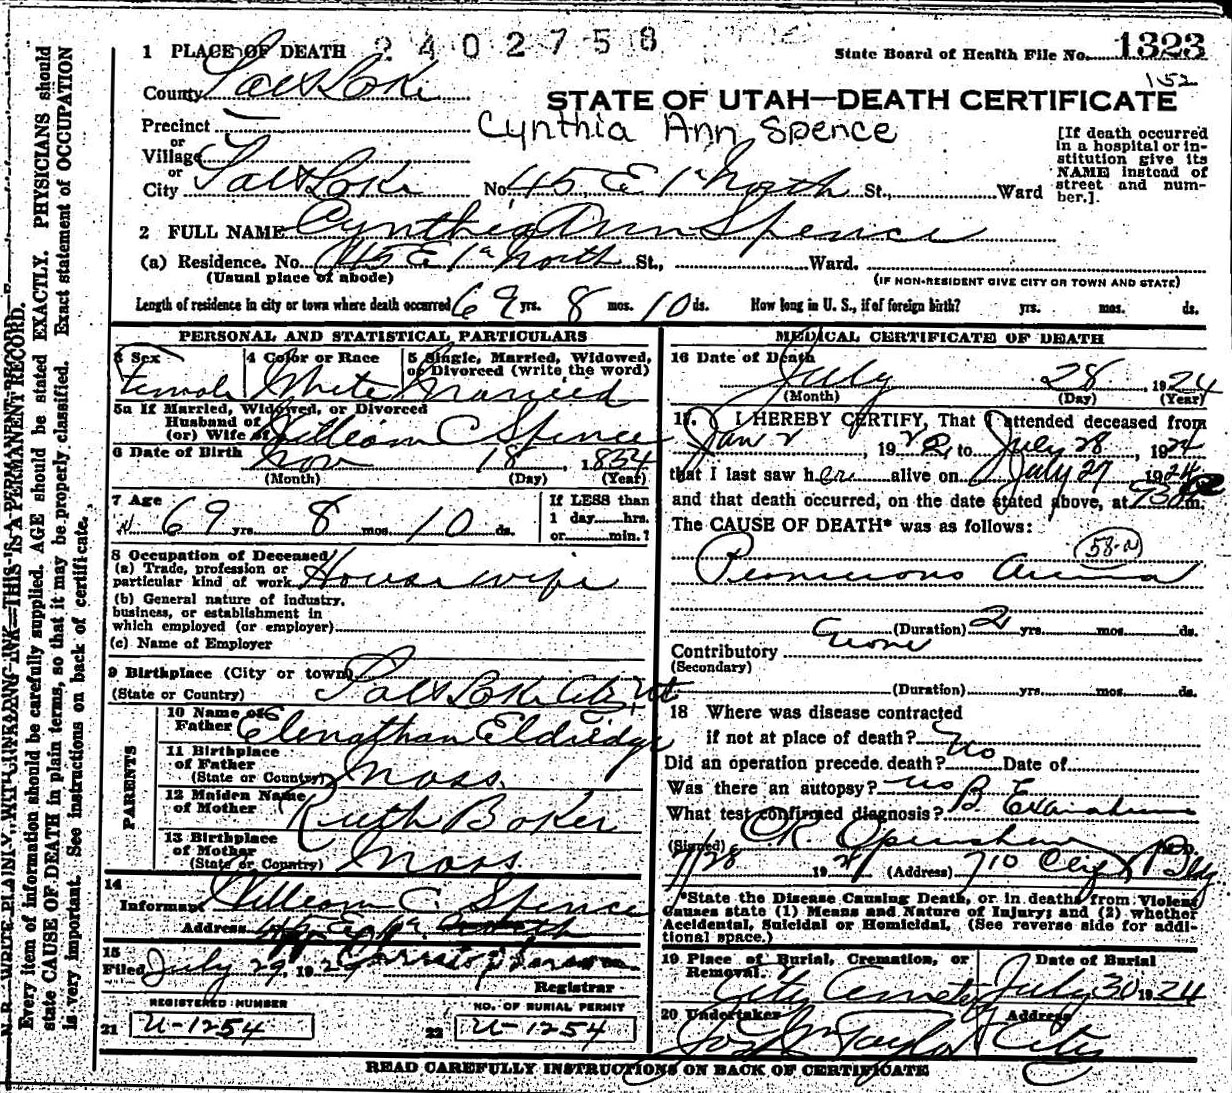 2402758
State Board of Health File No. 1323
152
1 PLACE OF DEATH
County Salt Lake
STATE OF UTAH—DEATH CERTIFICATE
Cynthia Ann Spence
Precinct
or
Village
or
City Salt Lake No. 45 E 1st North St., Ward
[If death occurred
in a hospital or in-
stitution give its
NAME instead of
street and num-
ber.].
2 FULL NAME Cynthia Ann Spence
(a) Residence. No. 45 E 1st North St., Ward.
(Usual place of abode)
(IF NON-RESIDENT GIVE CITY OR TOWN AND STATE)
Length of residence in city or town where death occurred 69 yrs. 8 mos. 10 ds. How long in U. S., if of foreign birth? yrs. mos. ds.
PERSONAL AND STATISTICAL PARTICULARS
3 Sex Female
4 Color or Race White
5 Single, Married, Widowed,
or Divorced (write the word)
Married
5a If Married, Widowed, or Divorced
Husband of
(or) Wife of William C Spence
6 Date of Birth Nov 18, 1854
(Month) (Day) (Year)
7 Age
69 yrs. 8 mos. 10 ds.
If LESS than
1 day hrs.
or min.?
8 Occupation of Deceased
(a) Trade, profession or
particular kind of work Housewife
(b) General nature of industry,
business, or establishment in
which employed (or employer)
(c) Name of Employer
9 Birthplace (City or town)
(State or Country) Salt Lake City Ut
PARENTS
10 Name of
Father Elenathan Eldredge
11 Birthplace
of Father
(State or Country) Mass.
12 Maiden Name
of Mother Ruth Baker
13 Birthplace
of Mother
(State or Country) Mass.
14
Informant William C. Spence
Address 45 E 1st North
15
Filed July 29, 1924
Registrar
REGISTERED NUMBER
21 U-1254
NO. OF BURIAL PERMIT
22 U-1254
MEDICAL CERTIFICATE OF DEATH
16 Date of Death
July 28, 1924
(Month) (Day) (Year)
17. I HEREBY CERTIFY, That I attended deceased from
Jan 2, 1922, to July 28, 1924
that I last saw her alive on July 27 1924
and that death occurred, on the date stated above, at 930 m.
The CAUSE OF DEATH* was as follows:
58-a
Pernicious Anemia
(Duration) 2 yrs. mos. ds.
Contributory None
(Secondary)
(Duration) yrs. mos. ds.
18 Where was disease contracted
if not at place of death?
Did an operation precede death? No Date of
Was there an autopsy? No
What test confirmed diagnosis? B Examination
(Signed) C. R. Openshaw M.D.
7/28 1924 (Address) 710 City Bldg.
*State the Disease Causing Death, or in deaths from Violent
Causes state (1) Means and Nature of Injury; and (2) whether
Accidental, Suicidal or Homicidal. (See reverse side for addi-
tional space.)
19 Place of Burial, Cremation, or
Removal.
City Cemetery
Date of Burial
July 30 1924
20 Undertaker
Jos. Wm Taylor
Address
City
READ CAREFULLY INSTRUCTIONS ON BACK OF CERTIFICATE
N. B.—WRITE PLAINLY, WITH UNFADING INK—THIS IS A PERMANENT RECORD.
Every item of information should be carefully supplied. AGE should be stated EXACTLY. PHYSICIANS should
state CAUSE OF DEATH in plain terms, so that it may be properly classified. Exact statement of OCCUPATION
is very important. See instructions on back of certificate.